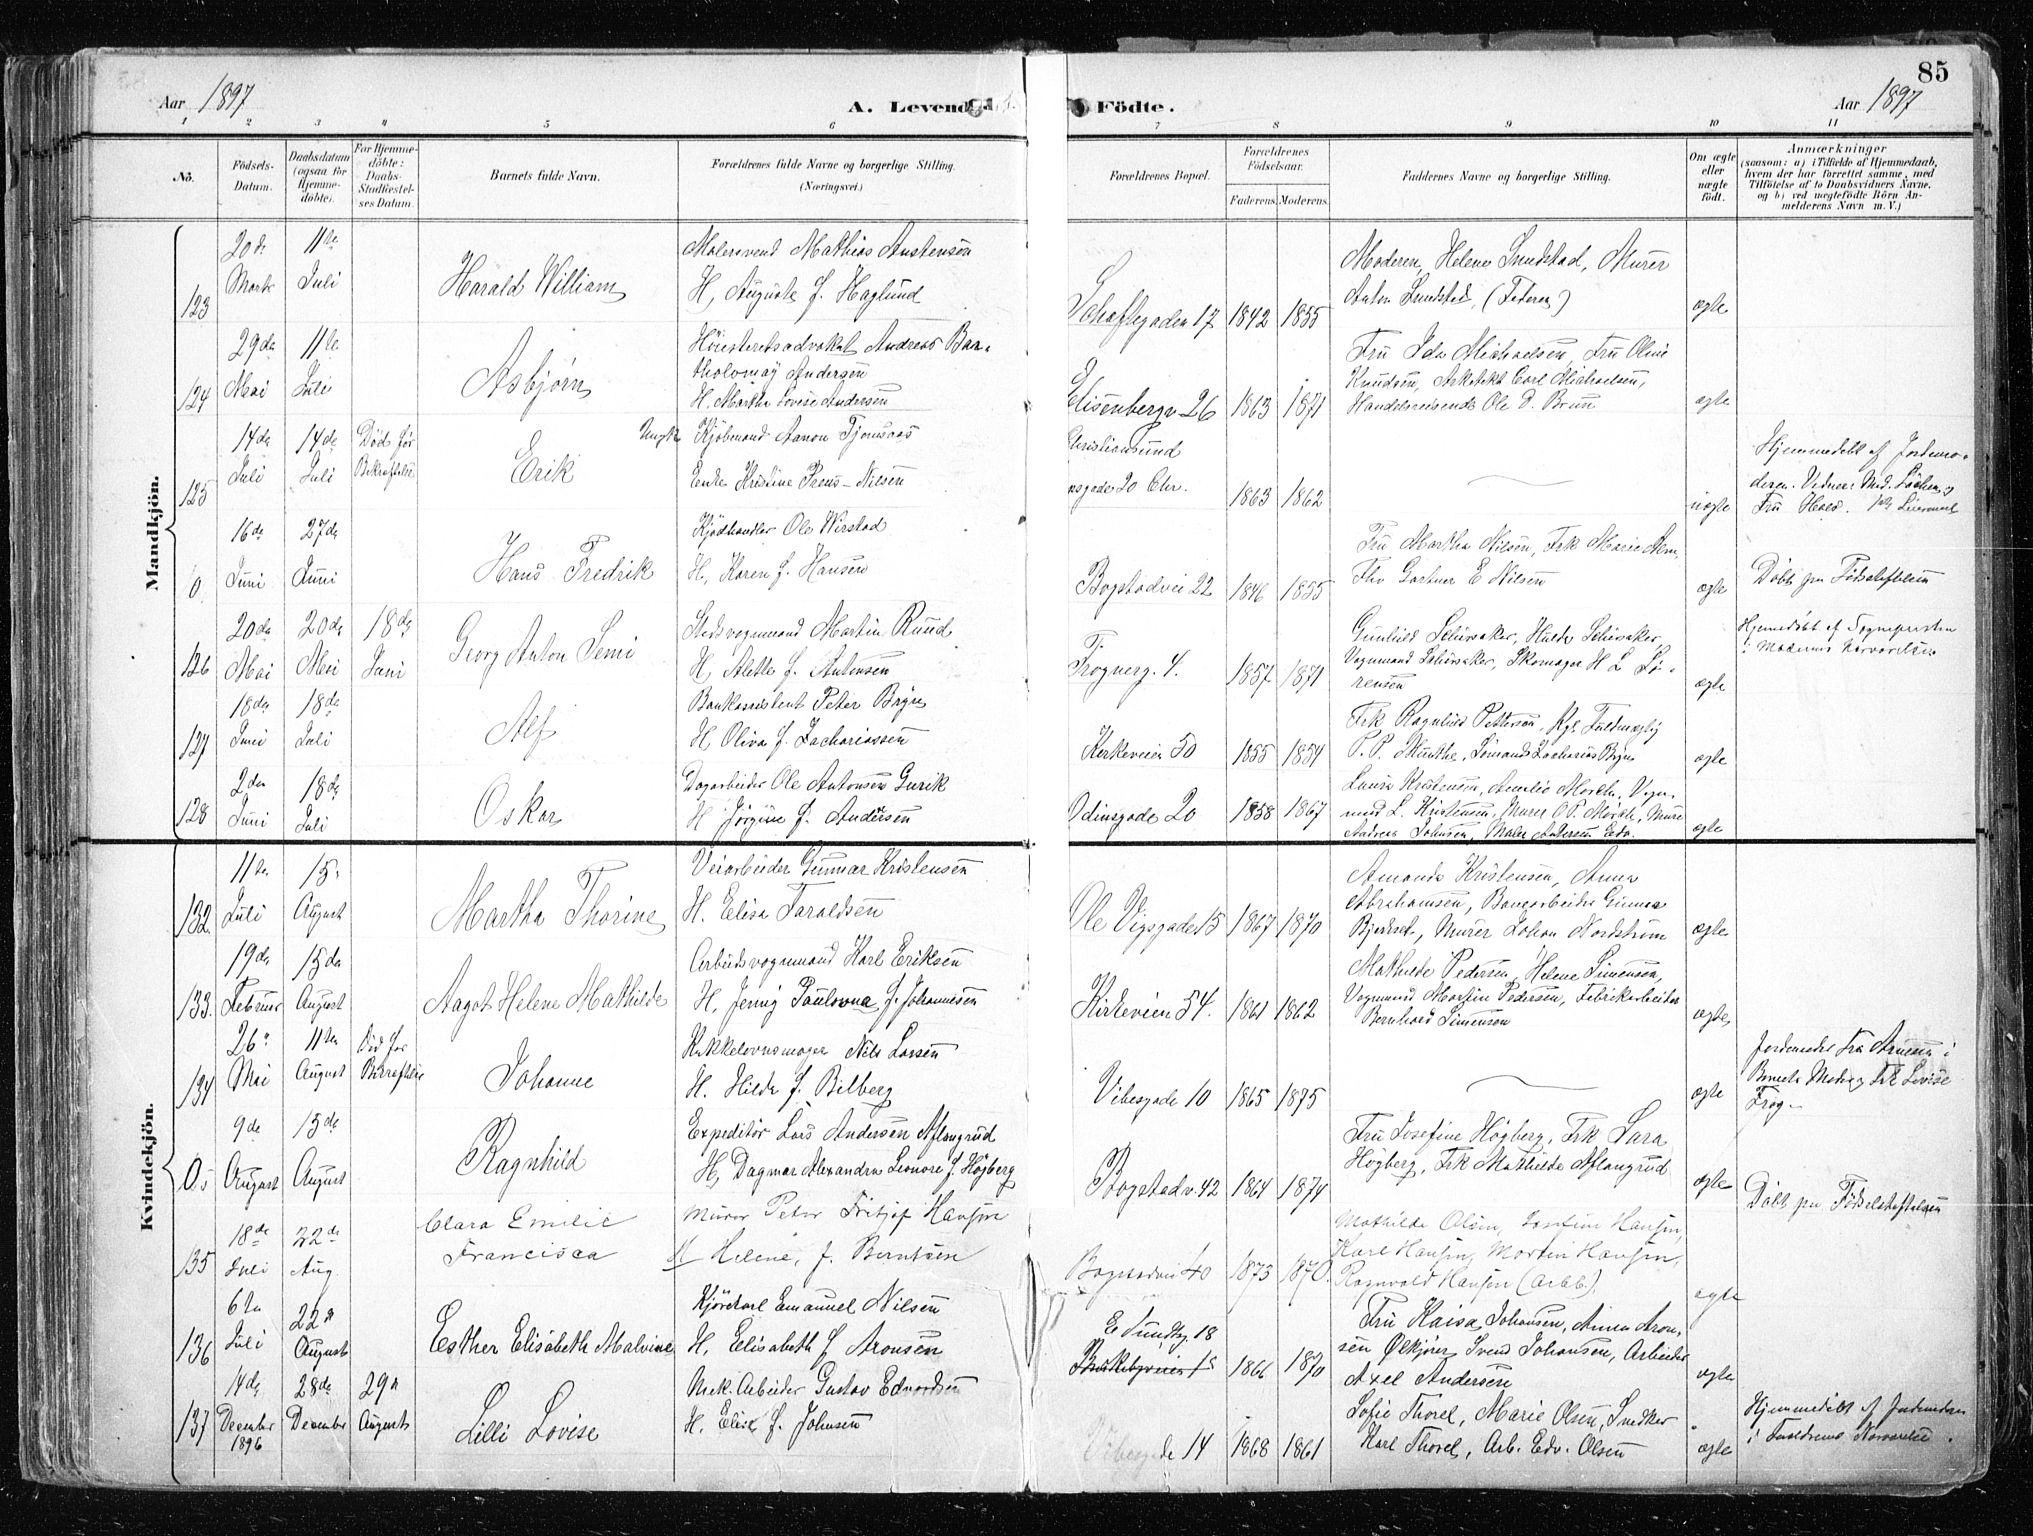 85
Aar 1897
A. Levende
Födte.
Aar 1897
1 2 3 4 5 6 7 8 9 10 11
Nö.
Födsels-
Datum.
Daabsdatum
(ogsaa for
Hjemme-
döbte).
For Hjemme-
döbte:
Daabs-
Stadfæstel-
ses Datum.
Barnets fulde Navn.
Forældrenes fulde Navne og borgerlige Stilling.
(Næringsvei.)
Forældrenes Bopæl.
Forældrenes
Födselsaar.
Faderens.
Moderens.
Faddernes Navne og borgerlige Stilling.
Om ægte
eller
uægte
født.
Anmærkninger
(saasom: a) i Tilfælde af Hjemmedaab,
hvem der har forrettet samme, med
Tilföielse af to Daabsvidners Navne,
og b) ved uægtefödte Börn An-
melderens Navn m. V.)
Mandkjön.
123
20de
Marts
11te
Juli
Harald William
Malersvend Mathias Austensen
H. Auguste f. Haglund
17
1842
1855
Moderen, Helene Sundstad, Murer
Anton Sundstad, (Faderen)
ægte
124
29de
Mai
11te
Juli
Asbjørn
Höiesteretsadvokat Andreas Bar-
tholomæy Andersen
H. Martha Lovise Andersen
Elisenbergv 26
1863
1871
Fru Ida Michaelsen, Fru Oline
Knudsen, Arkitekt Carl Michaelsen,
Handelsreisende Ole D. Bruun
ægte
125
14de
Juli
14de
Juli
Død før
Bekræftelse
Erik
Ungk. Kjöbmand Aanon
Enke Kristine Preus-Nilsen
Christiansund
20 Chr.
1863
1862
uægte
Hjemmedøbt af Jordemo-
deren. Vidner Md. Løken og
Fru Hald.
0
16de
Juni
27de
Juni
Hans Fredrik
Kjödhandler Ole Wirstad
H. Karen f. Hansen
Bogstadvei 22
1846
1855
Fru Martha Nilsen, Frk Marie
Gartner E Nilsen
ægte
Døbt pr. Fødselsstiftelsen
126
20de
Mai
20de
Mai
18de
Juni
Georg Anton
Martin Ruud
H. Alette f. Antonsen
Frognerg. 4.
1857
1871
Gunhild
Vognmand Skomager H L Sø-
rensen
ægte
Hjemmedøbt af Sognepresten
i Moderens Nærværelse
127
18de
Juni
18de
Juli
Alf
Bankassistent Peter Bryn
H Oliva f. Zachariassen
Kirkeveien 50
1855
1854
Frk Ragnhild Pettersen, Kgl. Fuldmægtig
P. P. Munthe, Sömand Zacharias Bryn
ægte
128
2den
Juni
18de
Juli
Oskar
Dagarbeider Ole Antonsen
H Jørgine f. Andersen
Odinsgade 20
1858
1867
Laura Kristensen, Amalie Vogn-
mand L. Kristensen, Murer
Andreas Johnsen, Maler
ægte
Kvindekjön.
132.
11te
Juli
15.
August
Martha Thorine
Veiarbeider Gunnar Kristensen
H. Elisa Taraldsen
Ole Vigsgade 15
1867
1870
Amanda Kristensen, Anna
Abrahamsen, Gunnar
Murer Johan Nordstrøm
ægte
133.
19de
Februar
15de
August
Aagot Helene Mathilde
Arbeidsvognmand Karl Eriksen
H. Jenny Paulovna f. Johannesen
Kirkeveien 54.
1861
1862
Mathilde Pedersen, Helene Simensen,
Vognmand Martin Pedersen, Fabrikarbeider
Bernhard Simensen
ægte
134
26.
Mai
11te
August
Død før
Bekræftelse
Johanne
Kakkelovnsmager Nils Larsen
H. Hilda f. Bilberg
Vibesgade 10
1865
1875
ægte
Jordemoder Fru i
Barnets Moder og Frk Lovise
0.
9de
August
15de
August
Ragnhild
Expeditör Lars Andersen Aflangrud
H. Dagmar Alexandra Leonore f. Högberg
Bogstadv. 42
1864
1874
Fru Josefine Högberg, Frk Sara
Högberg, Frk Mathilde Aflangrud
ægte
Døbt pr Fødselsstiftelsen
135
18de
Juli
22de
Aug.
Clara Emilie
Francisca
Murer Peter Fritjof Hansen
H Helene, f. Berntsen
Bogstadvei 40
1873
1870.
Mathilde Olsen, Josefine Hansen,
Karl Hansen, Martin Hansen,
Ragnvald Hansen (Arbb.)
ægte
136
6te
Juli
22de
August
Esther Elisabeth Malvine
Kjörekarl Emanuel Nilsen
H. Elisabeth f Aronsen
E Sundtsg. 18
1866
1870
Fru Kaisa Johansen, Anna Aron-
sen Ølkjører Svend Johansen, Arbeider
Axel Andersen
ægte
137
14de
December
1896
28de
December
29de
August
Lilli Lovise
Mek. Arbeider Gustav Edvardsen
H. Elise f. Johnsen
Vibesgade 14
1868
1861
Sofie Thorel, Marie Olsen, Snedker
Karl Thorel, Arb. Edv. Olsen
ægte
Hjemmedøbt af Jordemoderen
i Forældrenes Nærværelse.